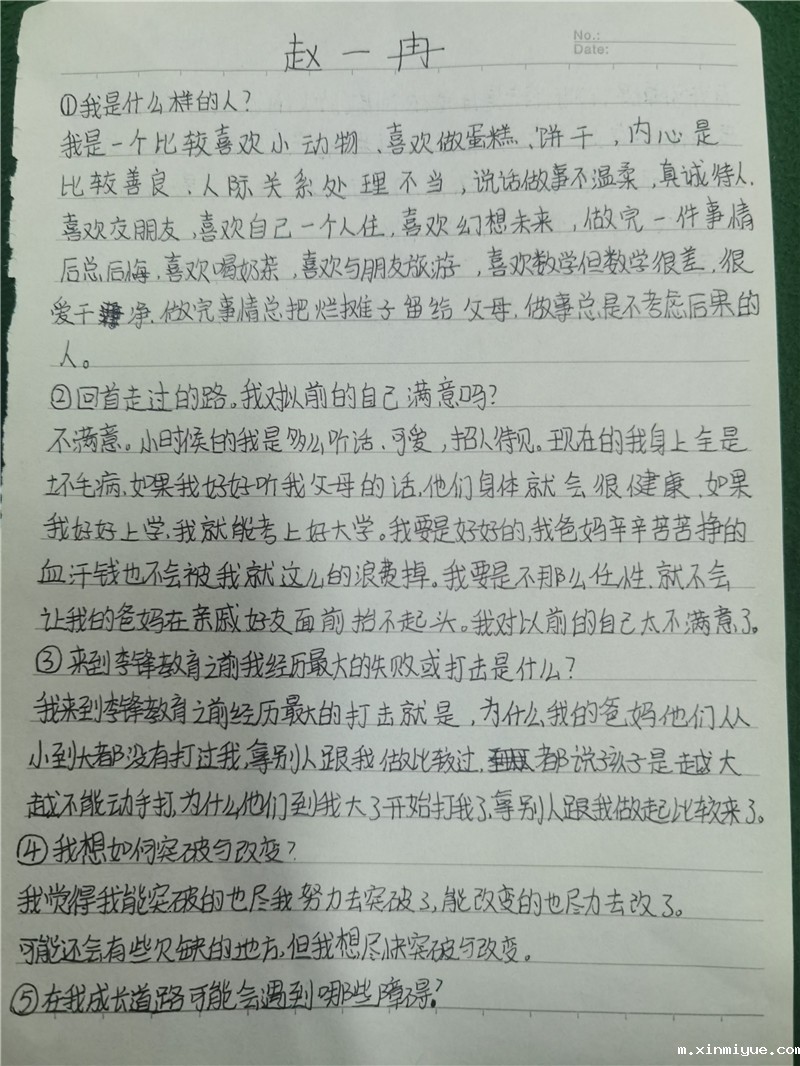 赵一冉
No.:
Date:
①我是什么样的人?
我是一个比较喜欢小动物、喜欢做蛋糕、饼干,内心是
比较善良、人际关系处理不当,说话做事不温柔,真诚待人、
喜欢交朋友,喜欢自己一个人住,喜欢幻想未来,做完一件事情
后总后悔,喜欢喝奶茶,喜欢与朋友旅游,喜欢数学但数学很差,很
爱干净,做完事情总把烂摊子留给父母,做事总是不考虑后果的
人。
②回首走过的路。我对以前的自己满意吗?
不满意。小时候的我是多么听话、可爱,招人待见。现在的我身上全是
坏毛病,如果我好好听我父母的话,他们身体就会很健康,如果
我好好上学,我就能考上好大学。我要是好好的,我爸妈辛辛苦苦挣的
血汗钱也不会被我就这么的浪费掉。我要是不那么任性,就不会
让我的爸妈在亲戚好友面前抬不起头。我对以前的自己太不满意了。
③来到李锋教育之前我经历最大的失败或打击是什么?
我来到李锋教育之前经历最大的打击就是,为什么我的爸妈他们从
小到大都没有打过我,拿别人跟我做比较过,都说孩子是越大
越不能动手打,为什么他们到我大了开始打我了,拿别人跟我做起比较来了。
④我想如何突破与改变?
我觉得我能突破的也尽我努力去突破了,能改变的也尽力去改了。
可能还会有些欠缺的地方,但我想尽快突破与改变。
⑤在我成长道路可能会遇到哪些障碍?
m.xinmiyue.com